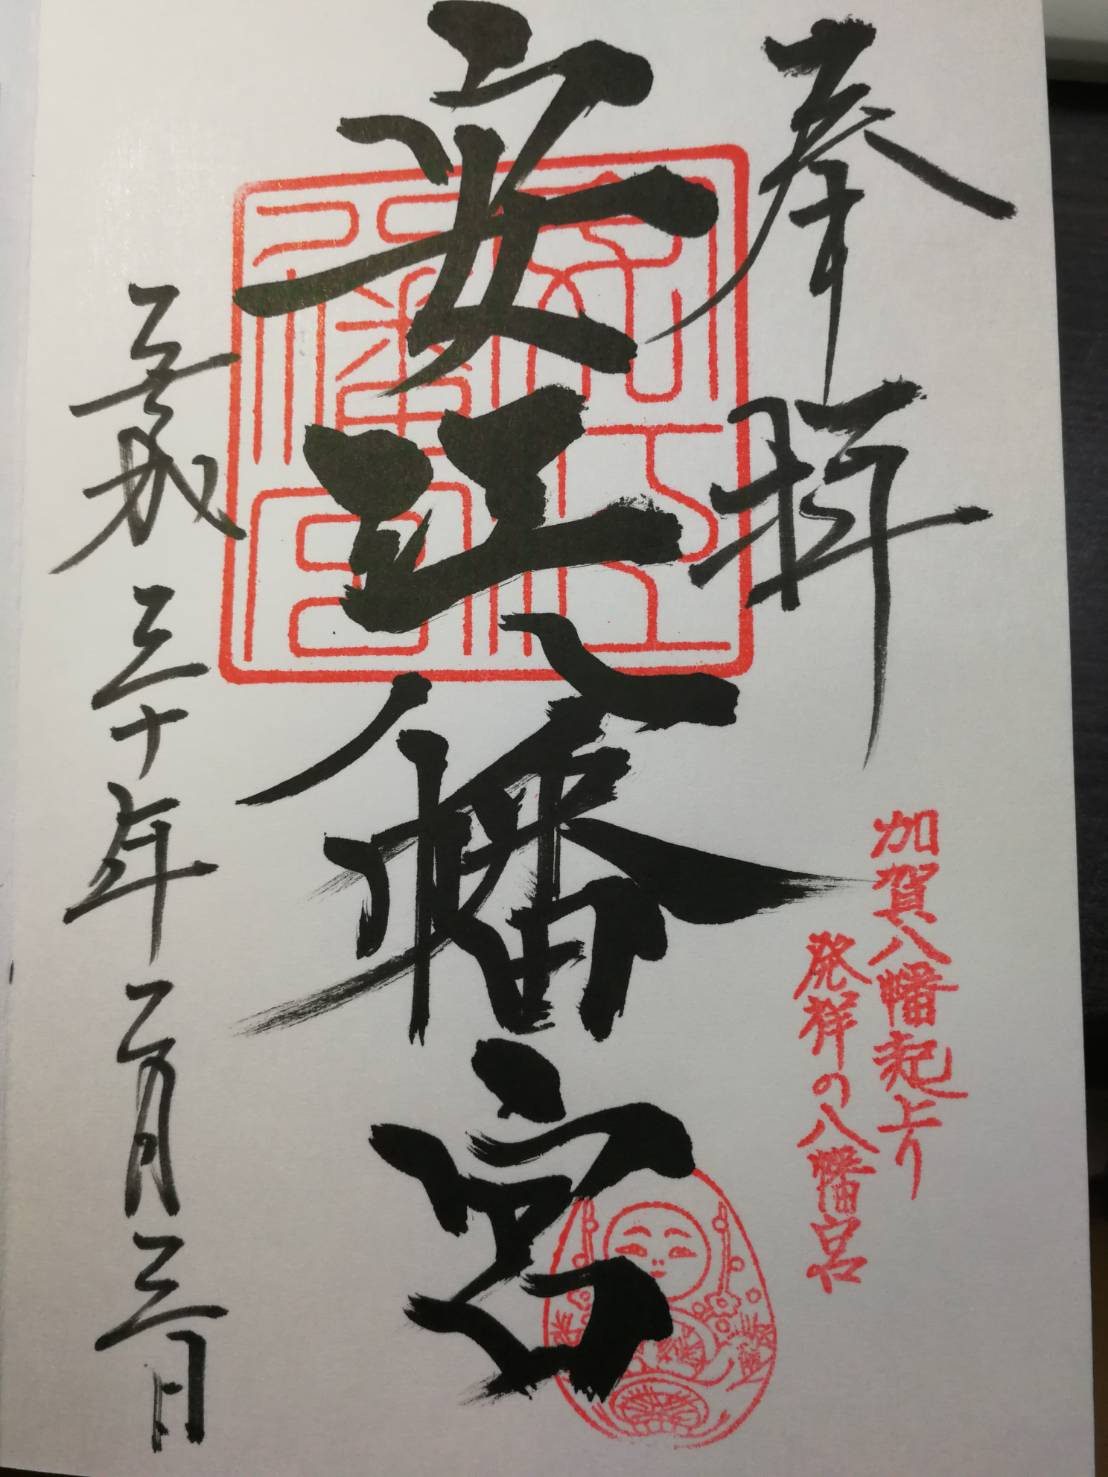 奉拝
加賀八幡起上り
発祥の八幡宮
安江八幡宮
安江八幡宮
平成三十年二月三日